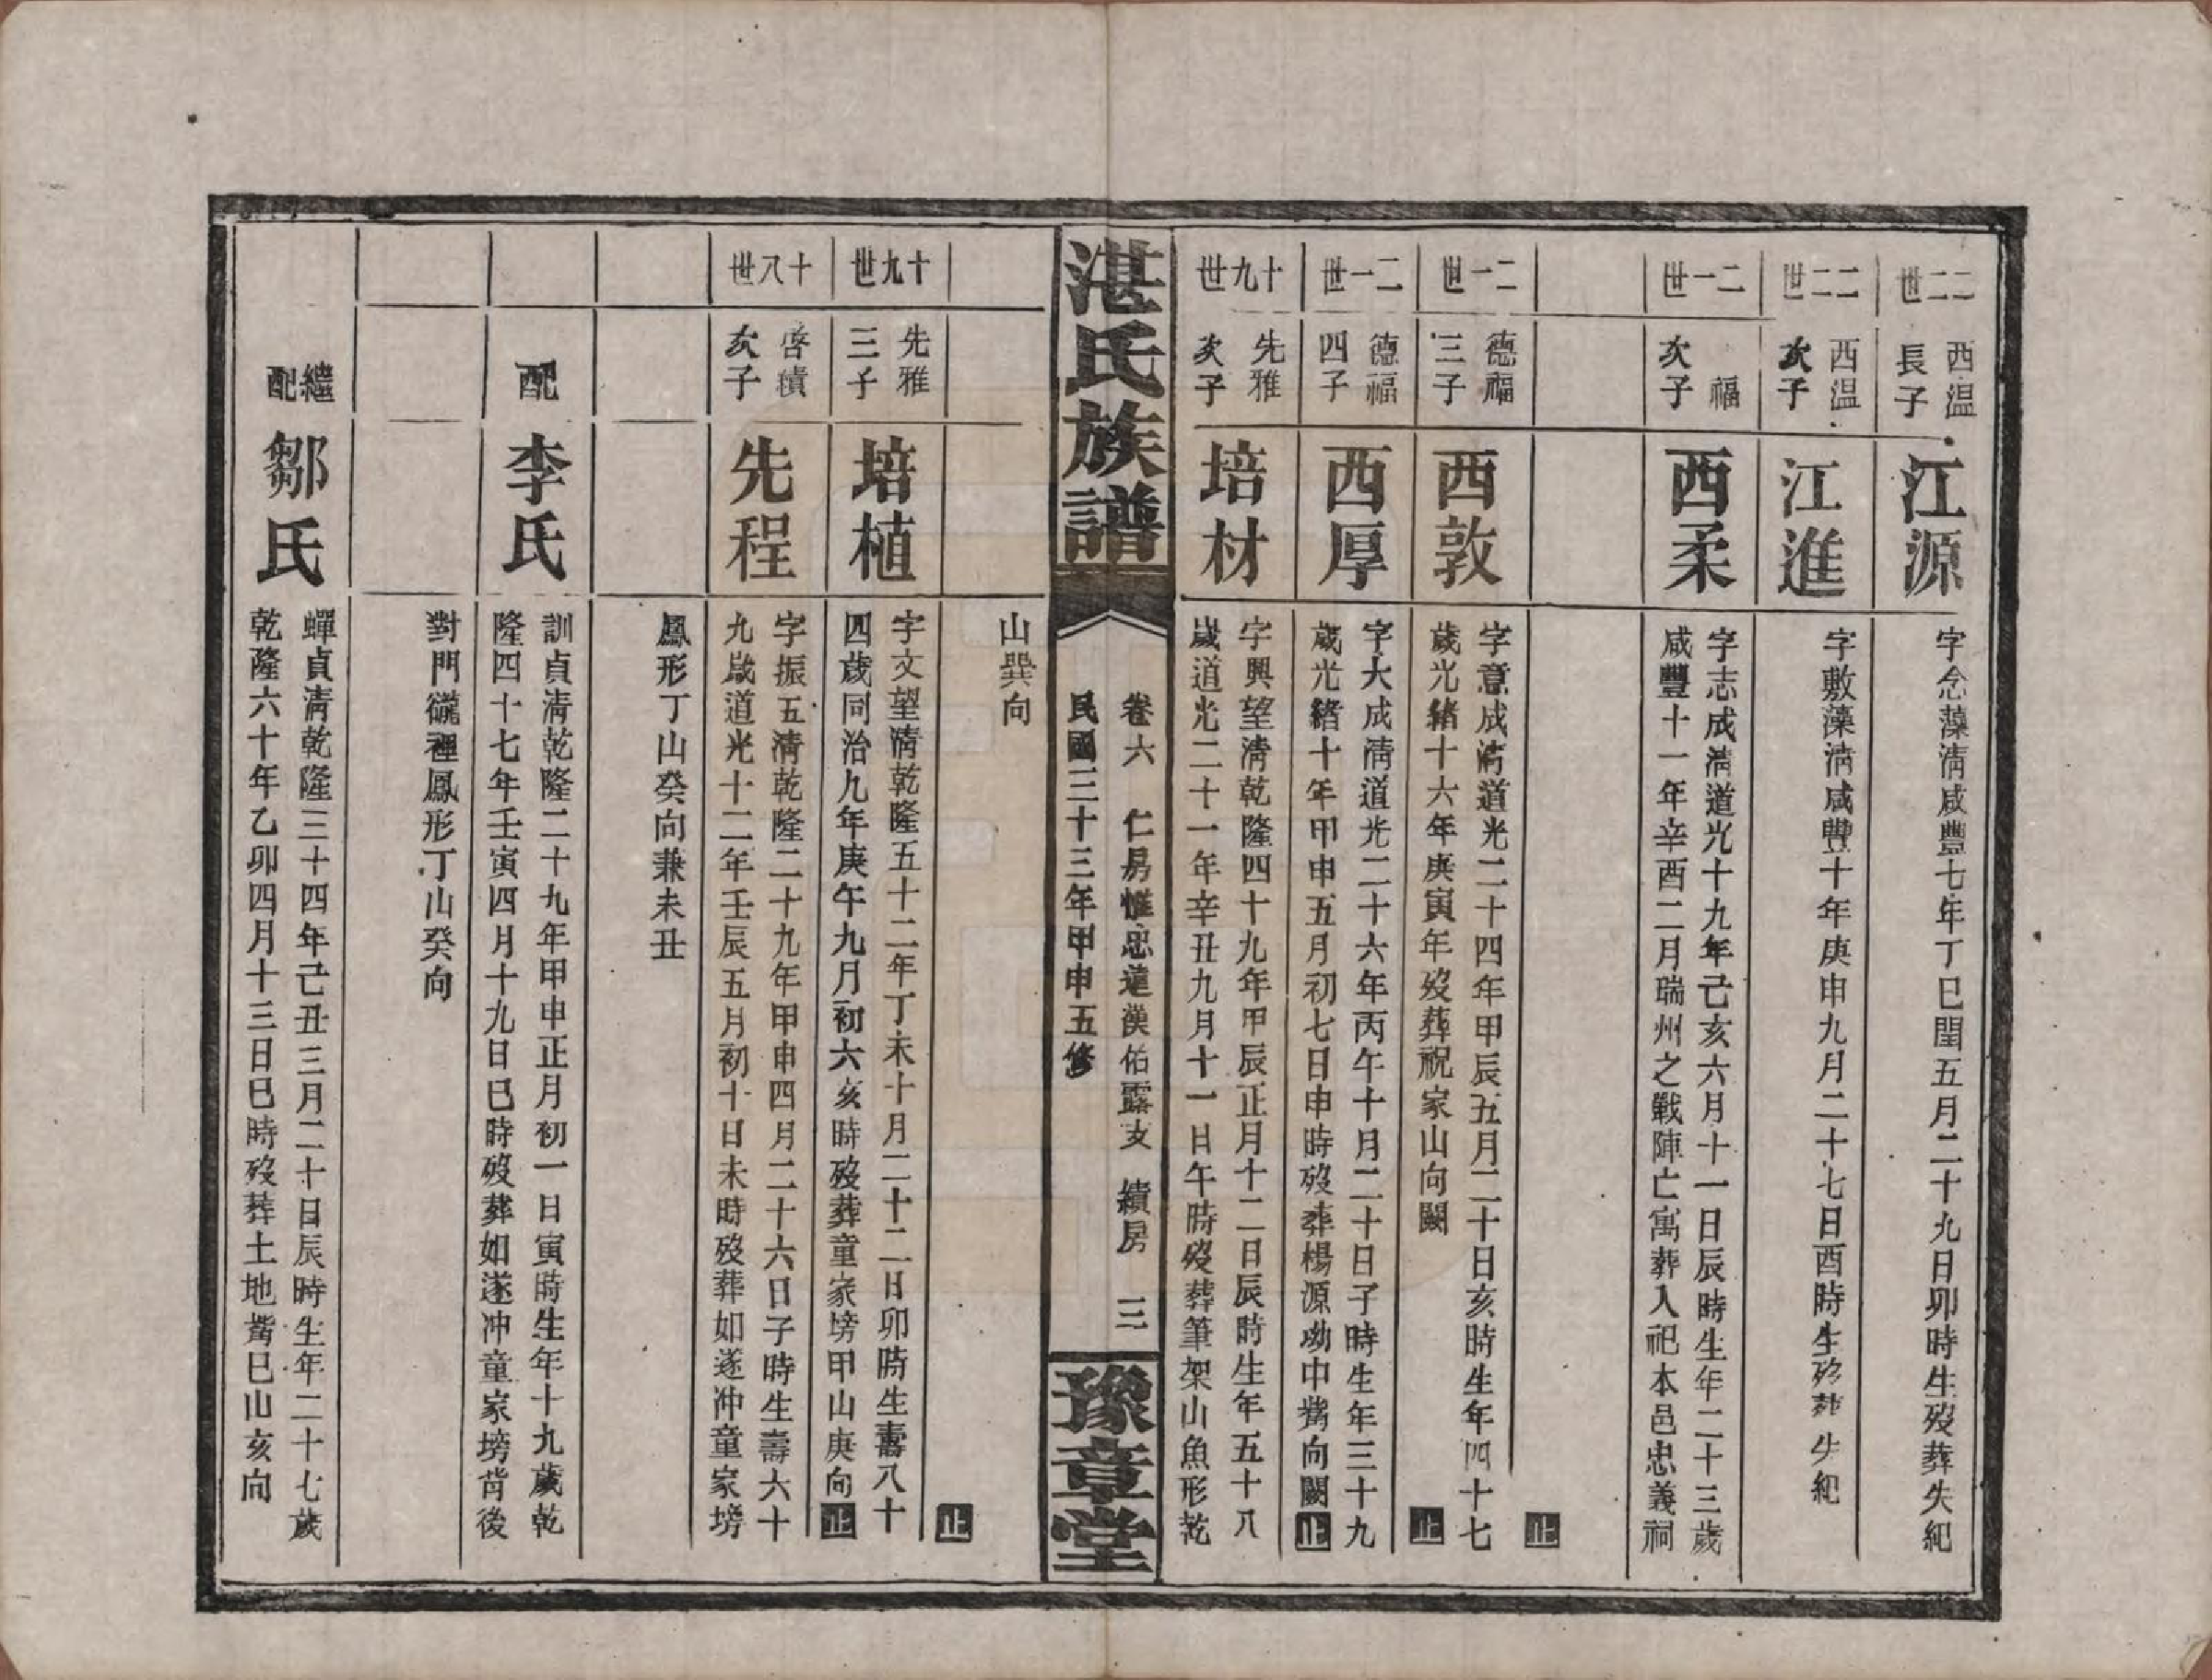 二二世
西温
長子
江源
字念藻淸咸豐七年丁巳閏五月二十九日卯時生歿葬失紀
二二世
西温
次子
江進
字敷藻淸咸豐十年庚申九月二十七日酉時生歿葬失紀
二一世
福
次子
西柔
字志成淸道光十九年己亥六月十一日辰時生年二十三歲
咸豐十一年辛酉二月瑞州之戰陣亡寓葬入祀本邑忠義祠
止
二一世
德福
三子
西敦
字意成淸道光二十四年甲辰五月二十日亥時生年四十七
歲光緒十六年庚寅年歿葬祝家山向闕
止
二一世
德福
四子
西厚
字大成淸道光二十六年丙午十月二十日子時生年三十九
歲光緒十年甲申五月初七日申時歿葬楊源坳中嘴向闕止
十九世
先雅
次子
培材
字興望淸乾隆四十九年甲辰正月十二日辰時生年五十八
歲道光二十一年辛丑九月十一日午時歿葬筆架山魚形乾
湛氏族譜
卷六 仁房惟忠蓮漢佑露支 績房 三
民國三十三年甲申五修
豫章堂
山巽向
止
十九世
先雅
三子
培植
字文望淸乾隆五十二年丁未十月二十二日卯時生壽八十
四歲同治九年庚午九月初六亥時歿葬童家塝甲山庚向止
十八世
啓績
次子
先程
字振五淸乾隆二十九年甲申四月二十六日子時生壽六十
九歲道光十二年壬辰五月初十日未時歿葬如遂冲童家塝
鳳形丁山癸向兼未丑
配
李氏
訓貞淸乾隆二十九年甲申正月初一日寅時生年十九歲乾
隆四十七年壬寅四月十九日巳時歿葬如遂冲童家塝背後
對門裡鳳形丁山癸向
繼
配
鄒氏
蟬貞淸乾隆三十四年己丑三月二十日辰時生年二十七歲
乾隆六十年乙卯四月十三日巳時歿葬土地嘴巳山亥向